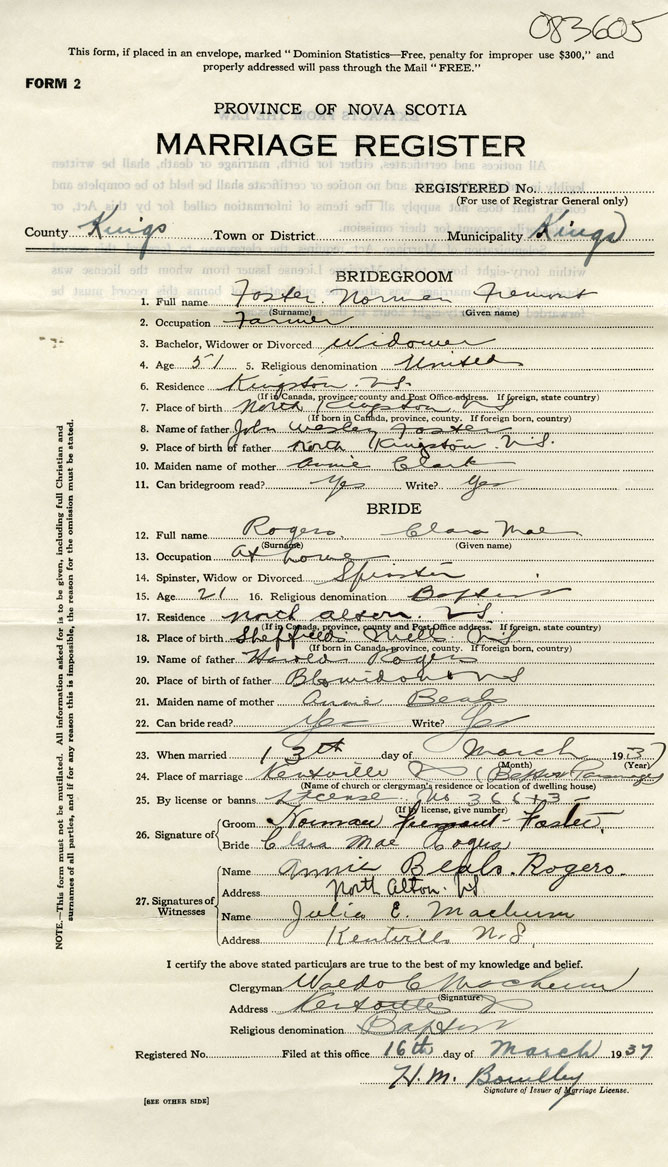 083605
This form, if placed in an envelope, marked "Dominion Statistics—Free, penalty for improper use $300," and
properly addressed will pass through the Mail "FREE."
FORM 2
PROVINCE OF NOVA SCOTIA
MARRIAGE REGISTER
REGISTERED No.
(For use of Registrar General only)
County Kings Town or District Municipality Kings
BRIDEGROOM
1. Full name Foster Norman Fremont
(Surname) (Given name)
2. Occupation Farmer
3. Bachelor, Widower or Divorced Widower
4. Age 51 5. Religious denomination United
6. Residence Kingston N.S.
(If in Canada, province, county and Post Office address. If foreign, state country)
7. Place of birth North Kingston N.S.
(If born in Canada, province, county. If foreign born, country)
8. Name of father John Wesley Foster
9. Place of birth of father North Kingston N.S.
10. Maiden name of mother Annie Clark
11. Can bridegroom read? Yes Write? Yes
BRIDE
12. Full name Rogers Clara Mae
(Surname) (Given name)
13. Occupation At home
14. Spinster, Widow or Divorced Spinster
15. Age 21 16. Religious denomination Baptist
17. Residence North Alton N.S.
(If in Canada, province, county and Post Office address. If foreign, state country)
18. Place of birth Sheffield Mills N.S.
(If born in Canada, province, county. If foreign born, country)
19. Name of father Harold Rogers
20. Place of birth of father Blomidon N.S.
21. Maiden name of mother Annie Beals
22. Can bride read? Yes Write? Yes
23. When married 13th day of March 1937
(Month) (Year)
24. Place of marriage Kentville (Baptist Parsonage)
(Name of church or clergyman's residence or location of dwelling house)
25. By license or banns License No 36643
(If by license, give number)
26. Signature of Groom Norman Fremont Foster
Bride Clara Mae Rogers
27. Signatures of Witnesses
Name Annie Beals Rogers.
Address North Alton. NS
Name Julia E. Machum
Address Kentville N.S.
NOTE.—This form must not be mutilated. All information asked for is to be given, including full Christian and
surnames of all parties, and if for any reason this is impossible, the reason for the omission must be stated.
I certify the above stated particulars are true to the best of my knowledge and belief.
Clergyman Waldo C Machum
(Signature)
Address Kentville
Religious denomination Baptist
Registered No. Filed at this office 16th day of March 1937
H. M. Bowlby
Signature of Issuer of Marriage License.
[SEE OTHER SIDE]